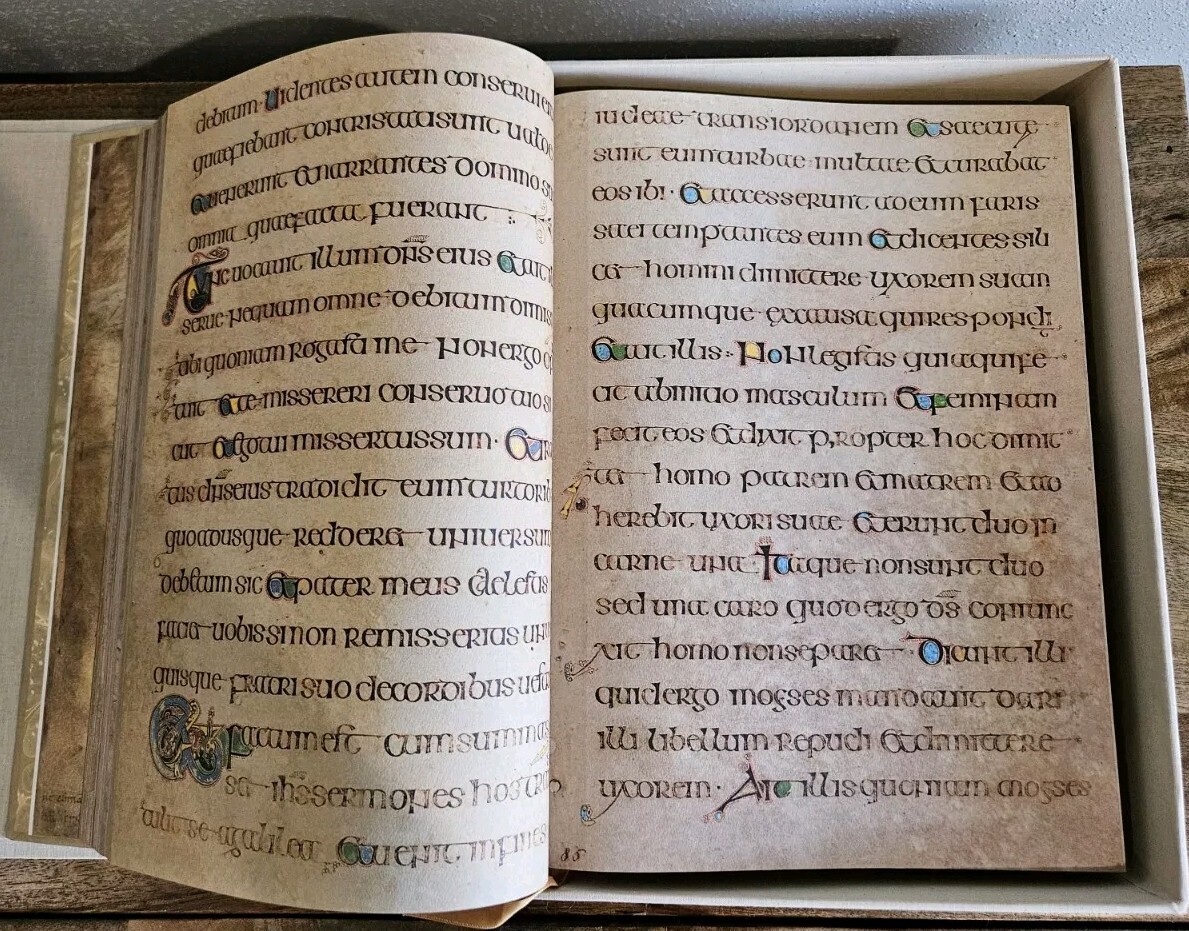 debitum · Uidentes autem conserui ei
quaefiebant contristatisunt ualde
&uenerunt &narrantes domino su
omnia quaefacta fuerant
Tunc uocauit illum dn̄s eius &ait
serue nequam omne debitum dimis
tibi quoniam rogasti me Nonergo o
tuit &te missereri conseruo tuo si
cut &ego tui missertussum · &ira
tus dn̄seius tradidit eum turtorib
quoadusque redderet uniuersum
debitum sic &pater meus caelestis
faciet uobis sinon remisseritis unu
quisque fratri suo decordibus uest
Et factumest cumsummas
set ihs sermones hos tra
tulit se agalilea &uenit infines
iudeae transiordanem &saecute
sunt eum turbae multae &curabat
eos ibi · &accesserunt adeum faris
saei temptantes eum &dicentes sili
cet homini dimittere uxorem suam
quacumque exausa quirespondi
&ait illis : Nonlegistis quiaquife
cit abinitio masculum &feminam
fecit eos &dixit propter hoc dimit
tet homo patrem &matrem &ad
herebit uxori suae &erunt duo in
carne una · Itaque nonsunt duo
sed una caro quod ergo d̄s coniunc
xit homo nonseparet · Dicunt illi
quidergo moyses mandauit dari
illi libellum repudi &dimittere
uxorem · Ait illis quoniam moyses
85